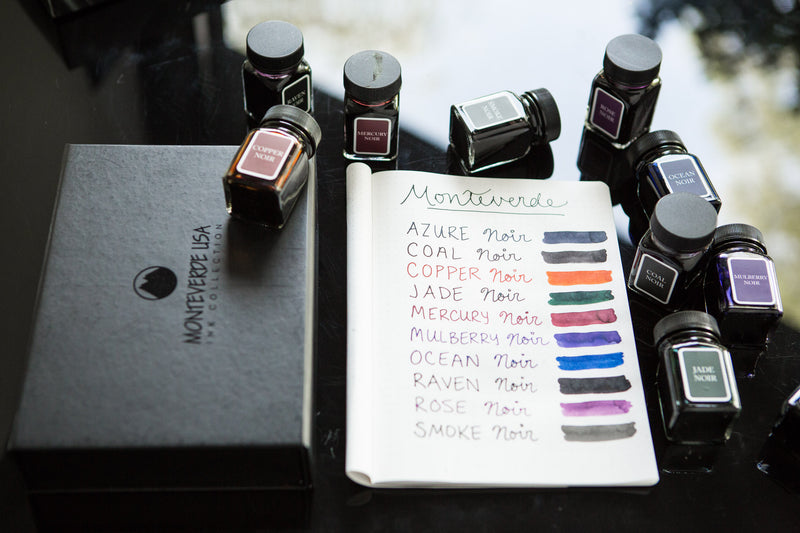 RAVEN
NOIR
MERCURY
NOIR
SMOKE
NOIR
ROSE
NOIR
COPPER
NOIR
OCEAN
NOIR
COAL
NOIR
MULBERRY
NOIR
JADE
NOIR
MONTEVERDE USA
INK COLLECTION
Monteverde
AZURE Noir
COAL Noir
COPPER Noir
JADE Noir
MERCURY Noir
MULBERRY Noir
OCEAN Noir
RAVEN Noir
ROSE Noir
SMOKE Noir